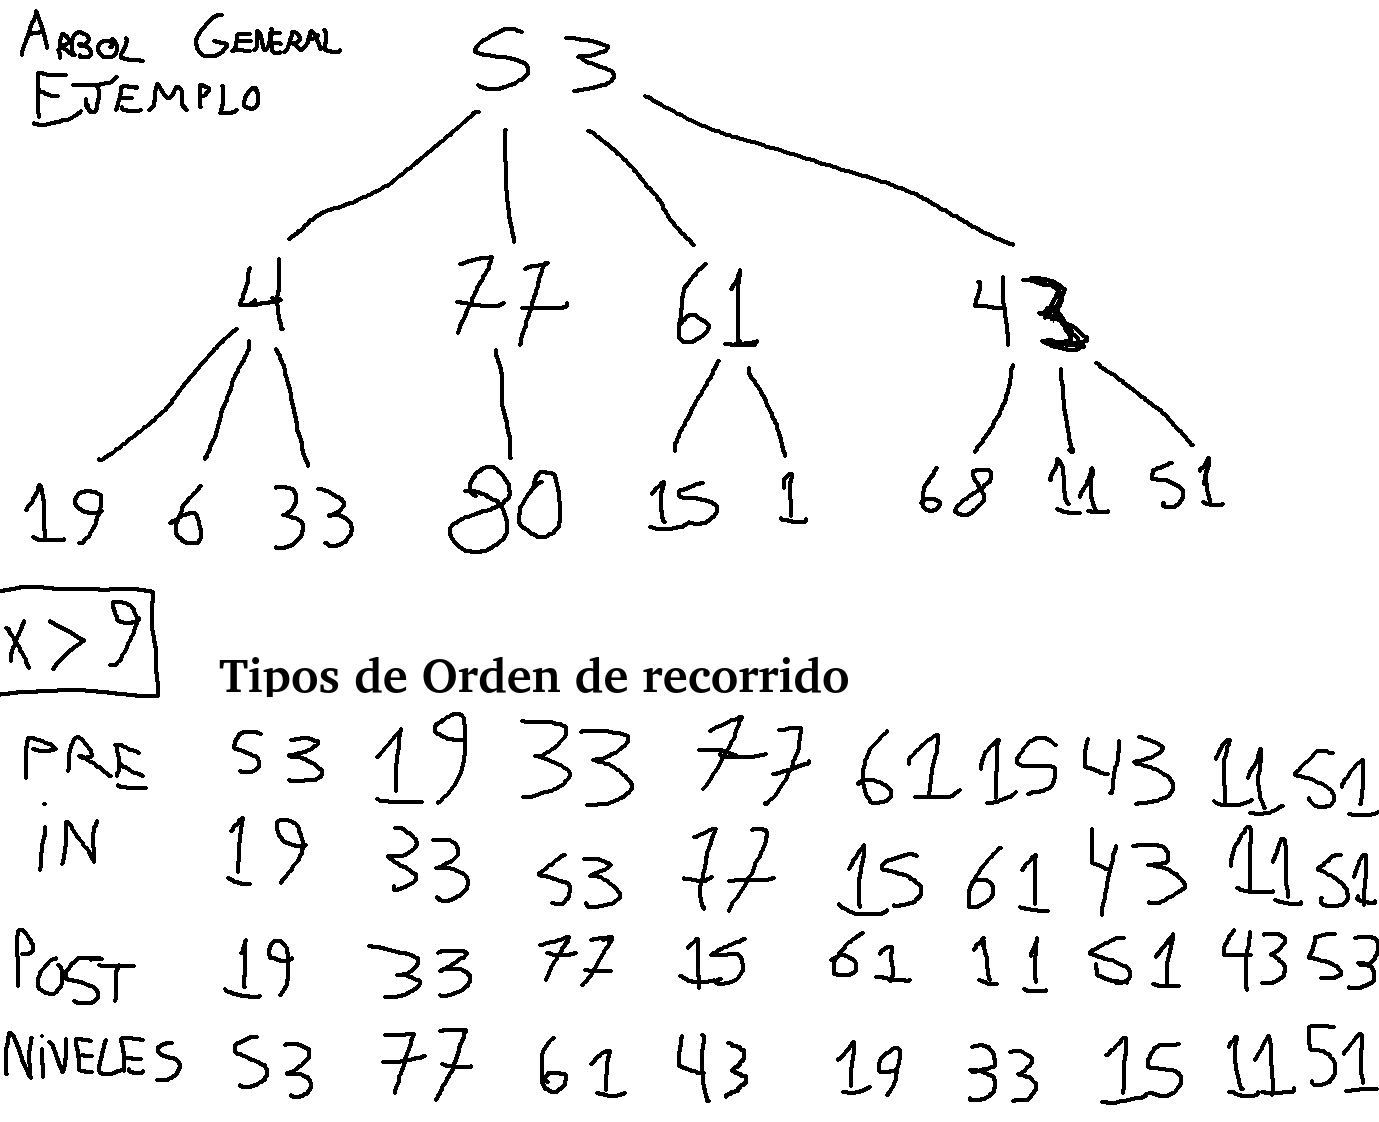 ARBOL GENERAL
EJEMPLO
53
4 77 61 43
19 6 33 80 15 1 68 11 51
x > 9
Tipos de Orden de recorrido
PRE 53 19 33 77 61 15 43 11 51
iN 19 33 53 77 15 61 43 11 51
POST 19 33 77 15 61 11 51 43 53
NiVELES 53 77 61 43 19 33 15 11 51